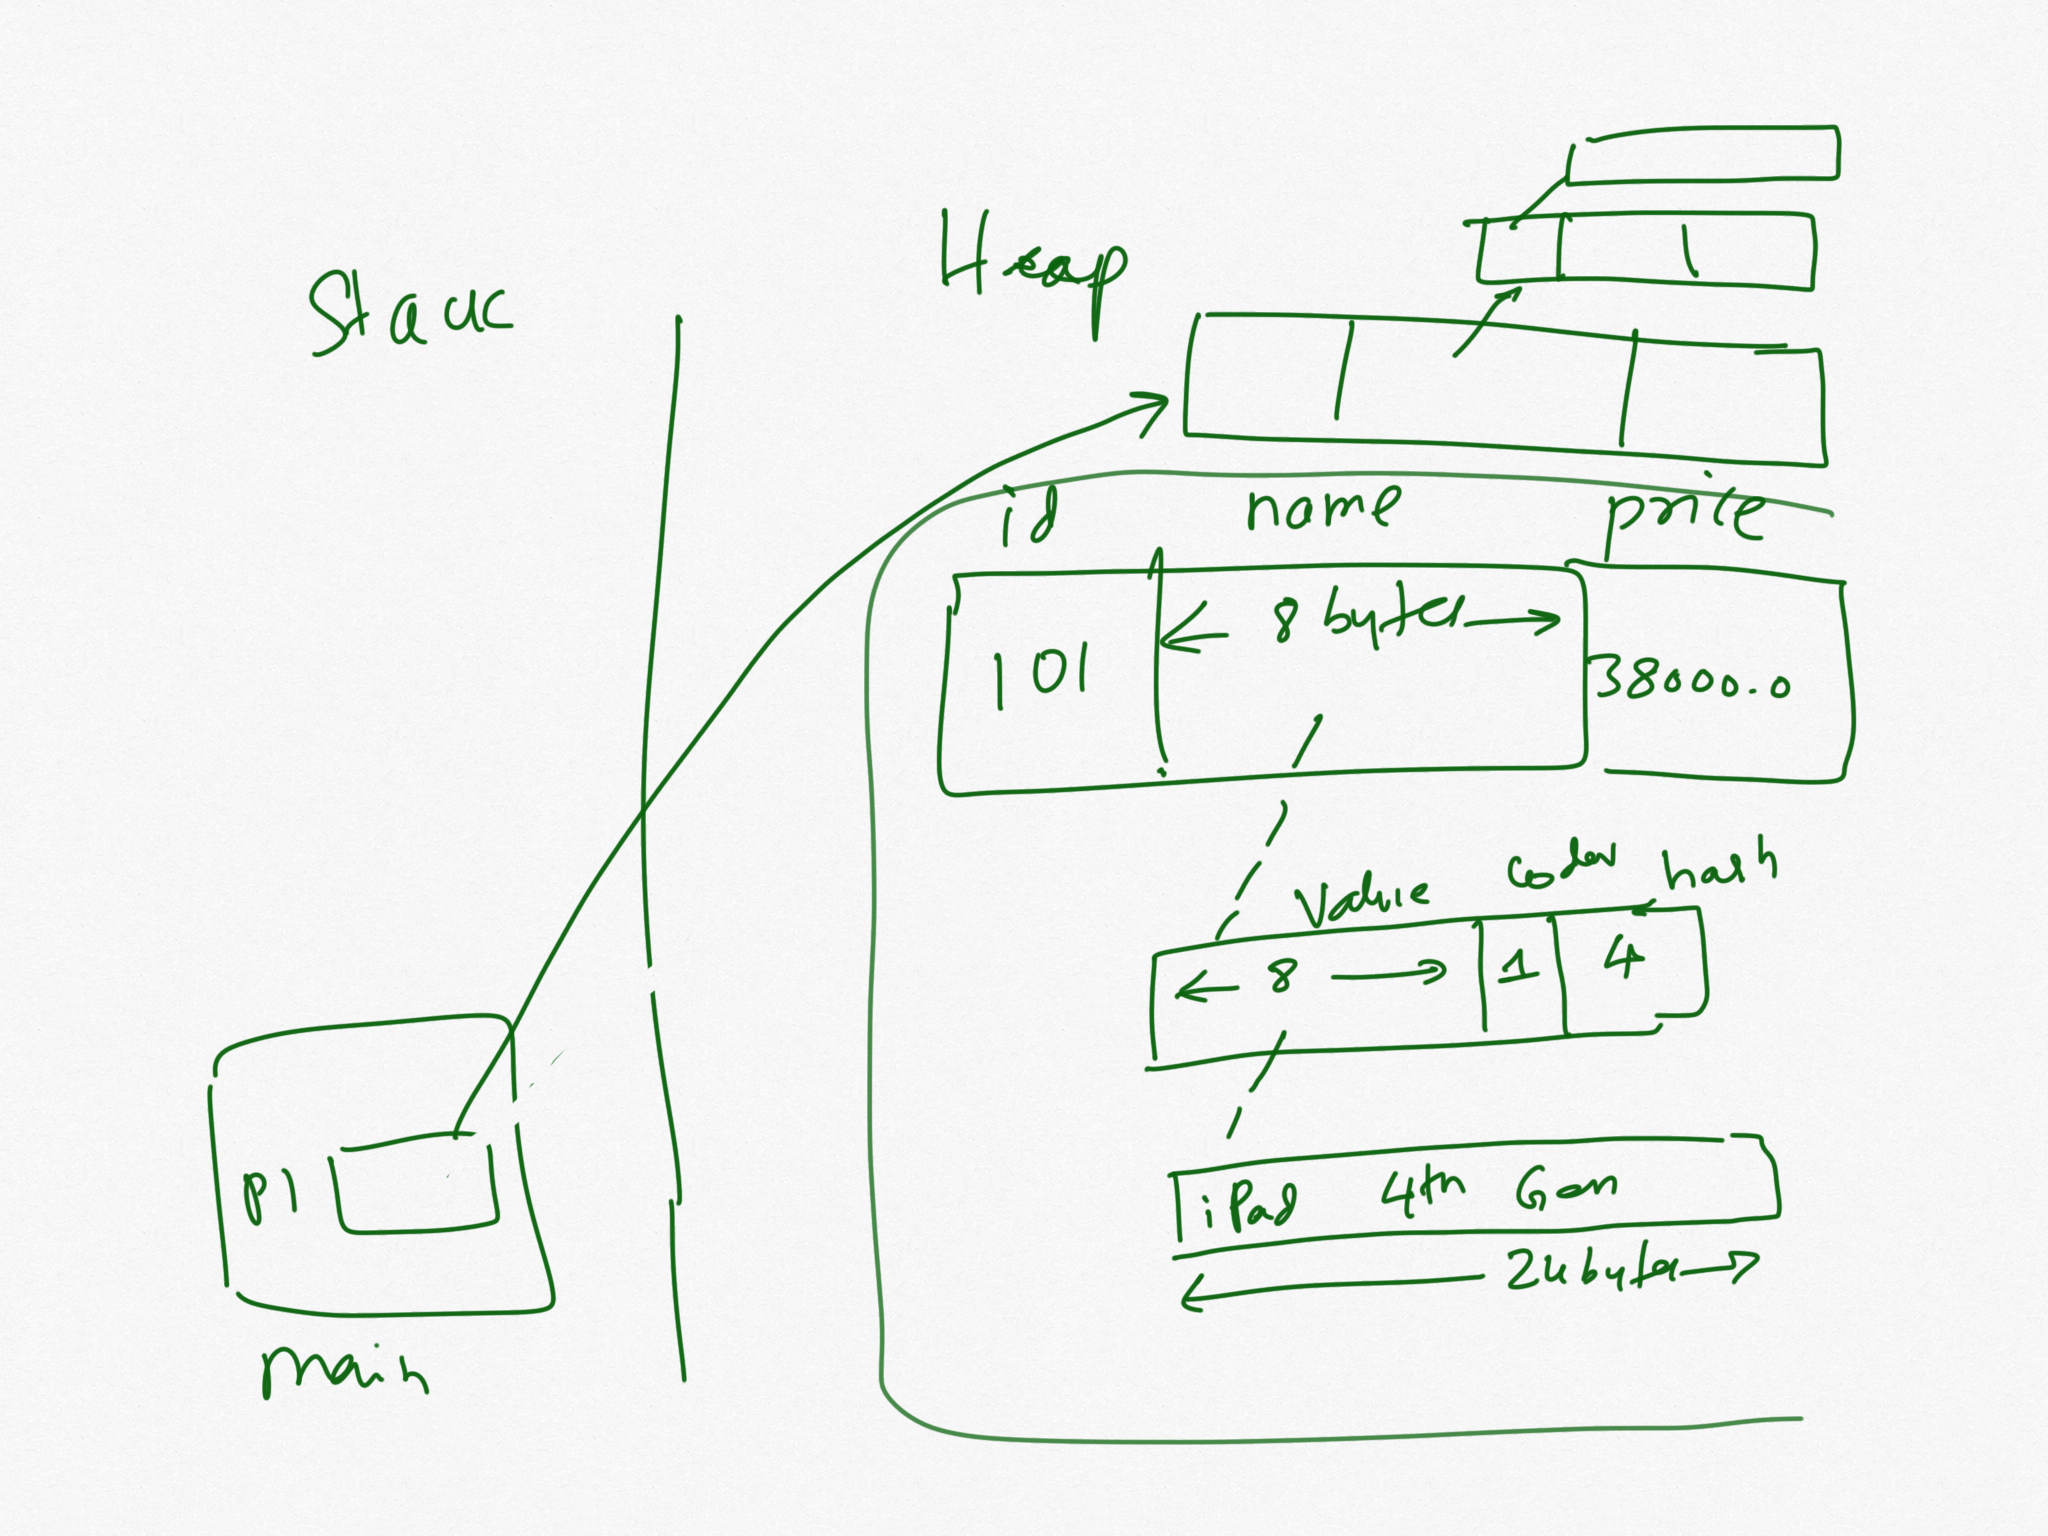 Stack
Heap
id name price
101 8 bytes 38000.0
Value coder hash
8 1 4
iPad 4th Gen
24 bytes
p1
main